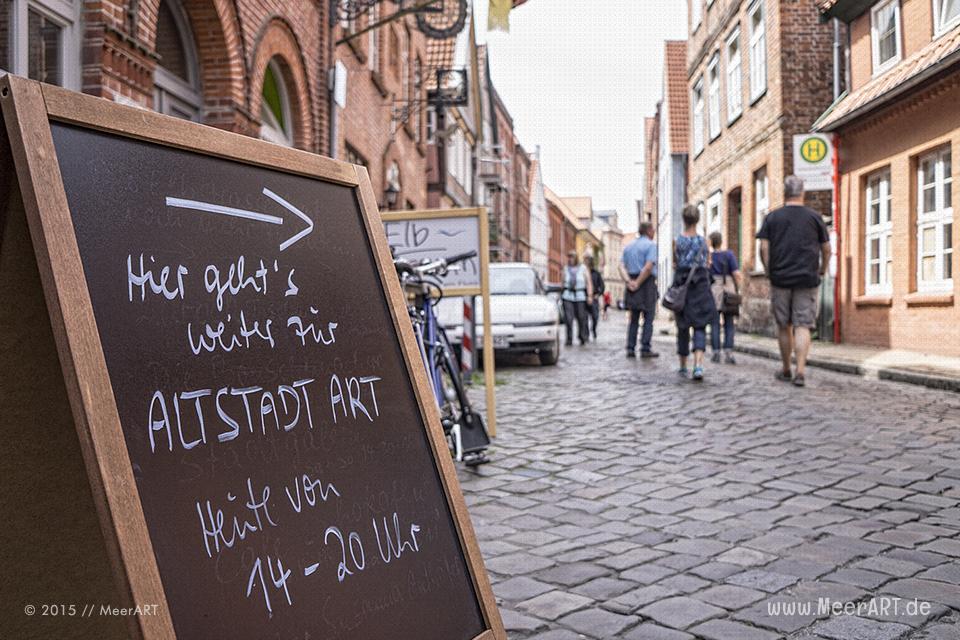 Hier geht's
weiter zur
ALTSTADT ART
Heute von
14 - 20 Uhr
Elb
H
© 2015 // MeerART
www.MeerART.de